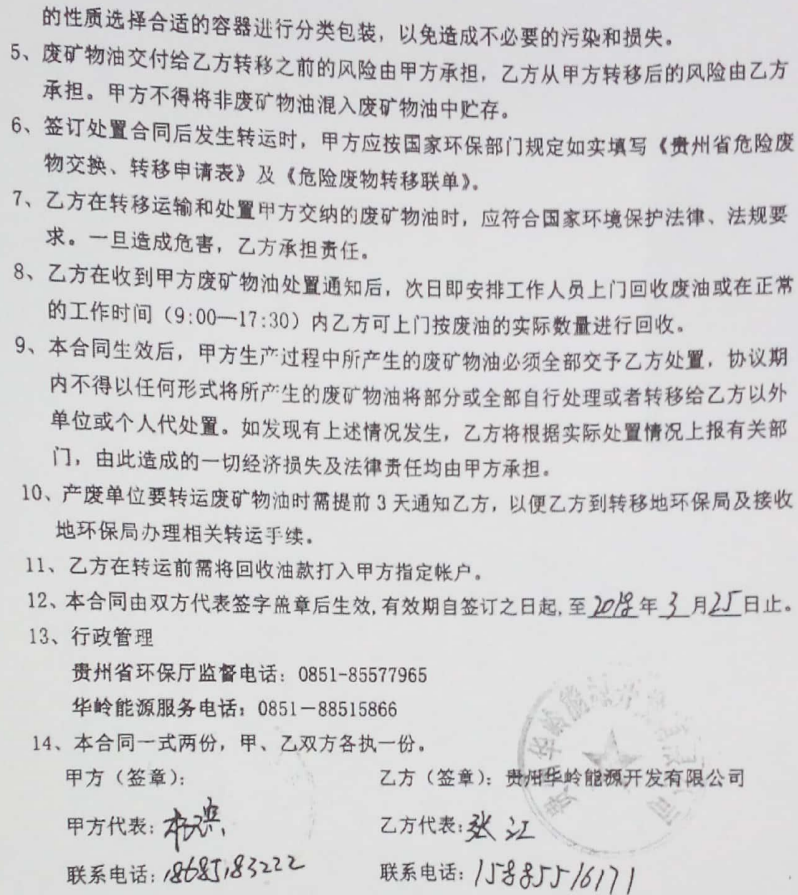 的性质选择合适的容器进行分类包装，以免造成不必要的污染和损失。
5、废矿物油交付给乙方转移之前的风险由甲方承担，乙方从甲方转移后的风险由乙方
承担。甲方不得将非废矿物油混入废矿物油中贮存。
6、签订处置合同后发生转运时，甲方应按国家环保部门规定如实填写《贵州省危险废
物交换、转移申请表》及《危险废物转移联单》。
7、乙方在转移运输和处置甲方交纳的废矿物油时，应符合国家环境保护法律、法规要
求。一旦造成危害，乙方承担责任。
8、乙方在收到甲方废矿物油处置通知后，次日即安排工作人员上门回收废油或在正常
的工作时间（9:00—17:30）内乙方可上门按废油的实际数量进行回收。
9、本合同生效后，甲方生产过程中所产生的废矿物油必须全部交予乙方处置，协议期
内不得以任何形式将所产生的废矿物油将部分或全部自行处理或者转移给乙方以外
单位或个人代处置。如发现有上述情况发生，乙方将根据实际处置情况上报有关部
门，由此造成的一切经济损失及法律责任均由甲方承担。
10、产废单位要转运废矿物油时需提前 3 天通知乙方，以便乙方到转移地环保局及接收
地环保局办理相关转运手续。
11、乙方在转运前需将回收油款打入甲方指定帐户。
12、本合同由双方代表签字盖章后生效,有效期自签订之日起,至2018年3月25日止。
13、行政管理
贵州省环保厅监督电话：0851-85577965
华岭能源服务电话：0851－88515866
14、本合同一式两份，甲、乙双方各执一份。
甲方（签章）： 乙方（签章）：贵州华岭能源开发有限公司
甲方代表： 乙方代表：张江
联系电话：18685183222 联系电话：15885516171